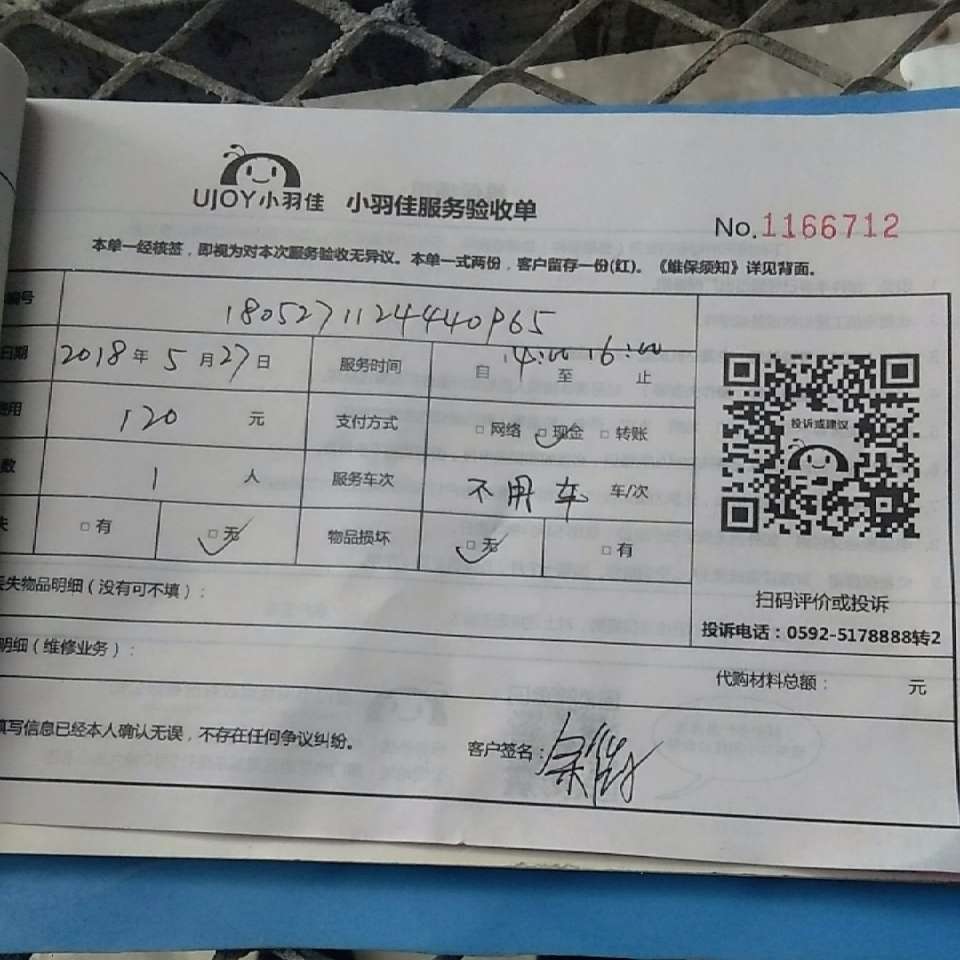 UJOY小羽佳 小羽佳服务验收单
No.1166712
本单一经核签，即视为对本次服务验收无异议。本单一式两份，客户留存一份(红)。《维保须知》详见背面。
编号 1805271124440965
日期 2018年5月27日 服务时间 自14:00至16:00止
费用 120 元 支付方式 □网络 □现金 □转账
数 1 人 服务车次 不用车 车/次
失 □有 □无 物品损坏 □无 □有
投诉或建议
扫码评价或投诉
投诉电话：0592-5178888转2
丢失物品明细（没有可不填）：
明细（维修业务）：
代购材料总额： 元
填写信息已经本人确认无误，不存在任何争议纠纷。
客户签名：